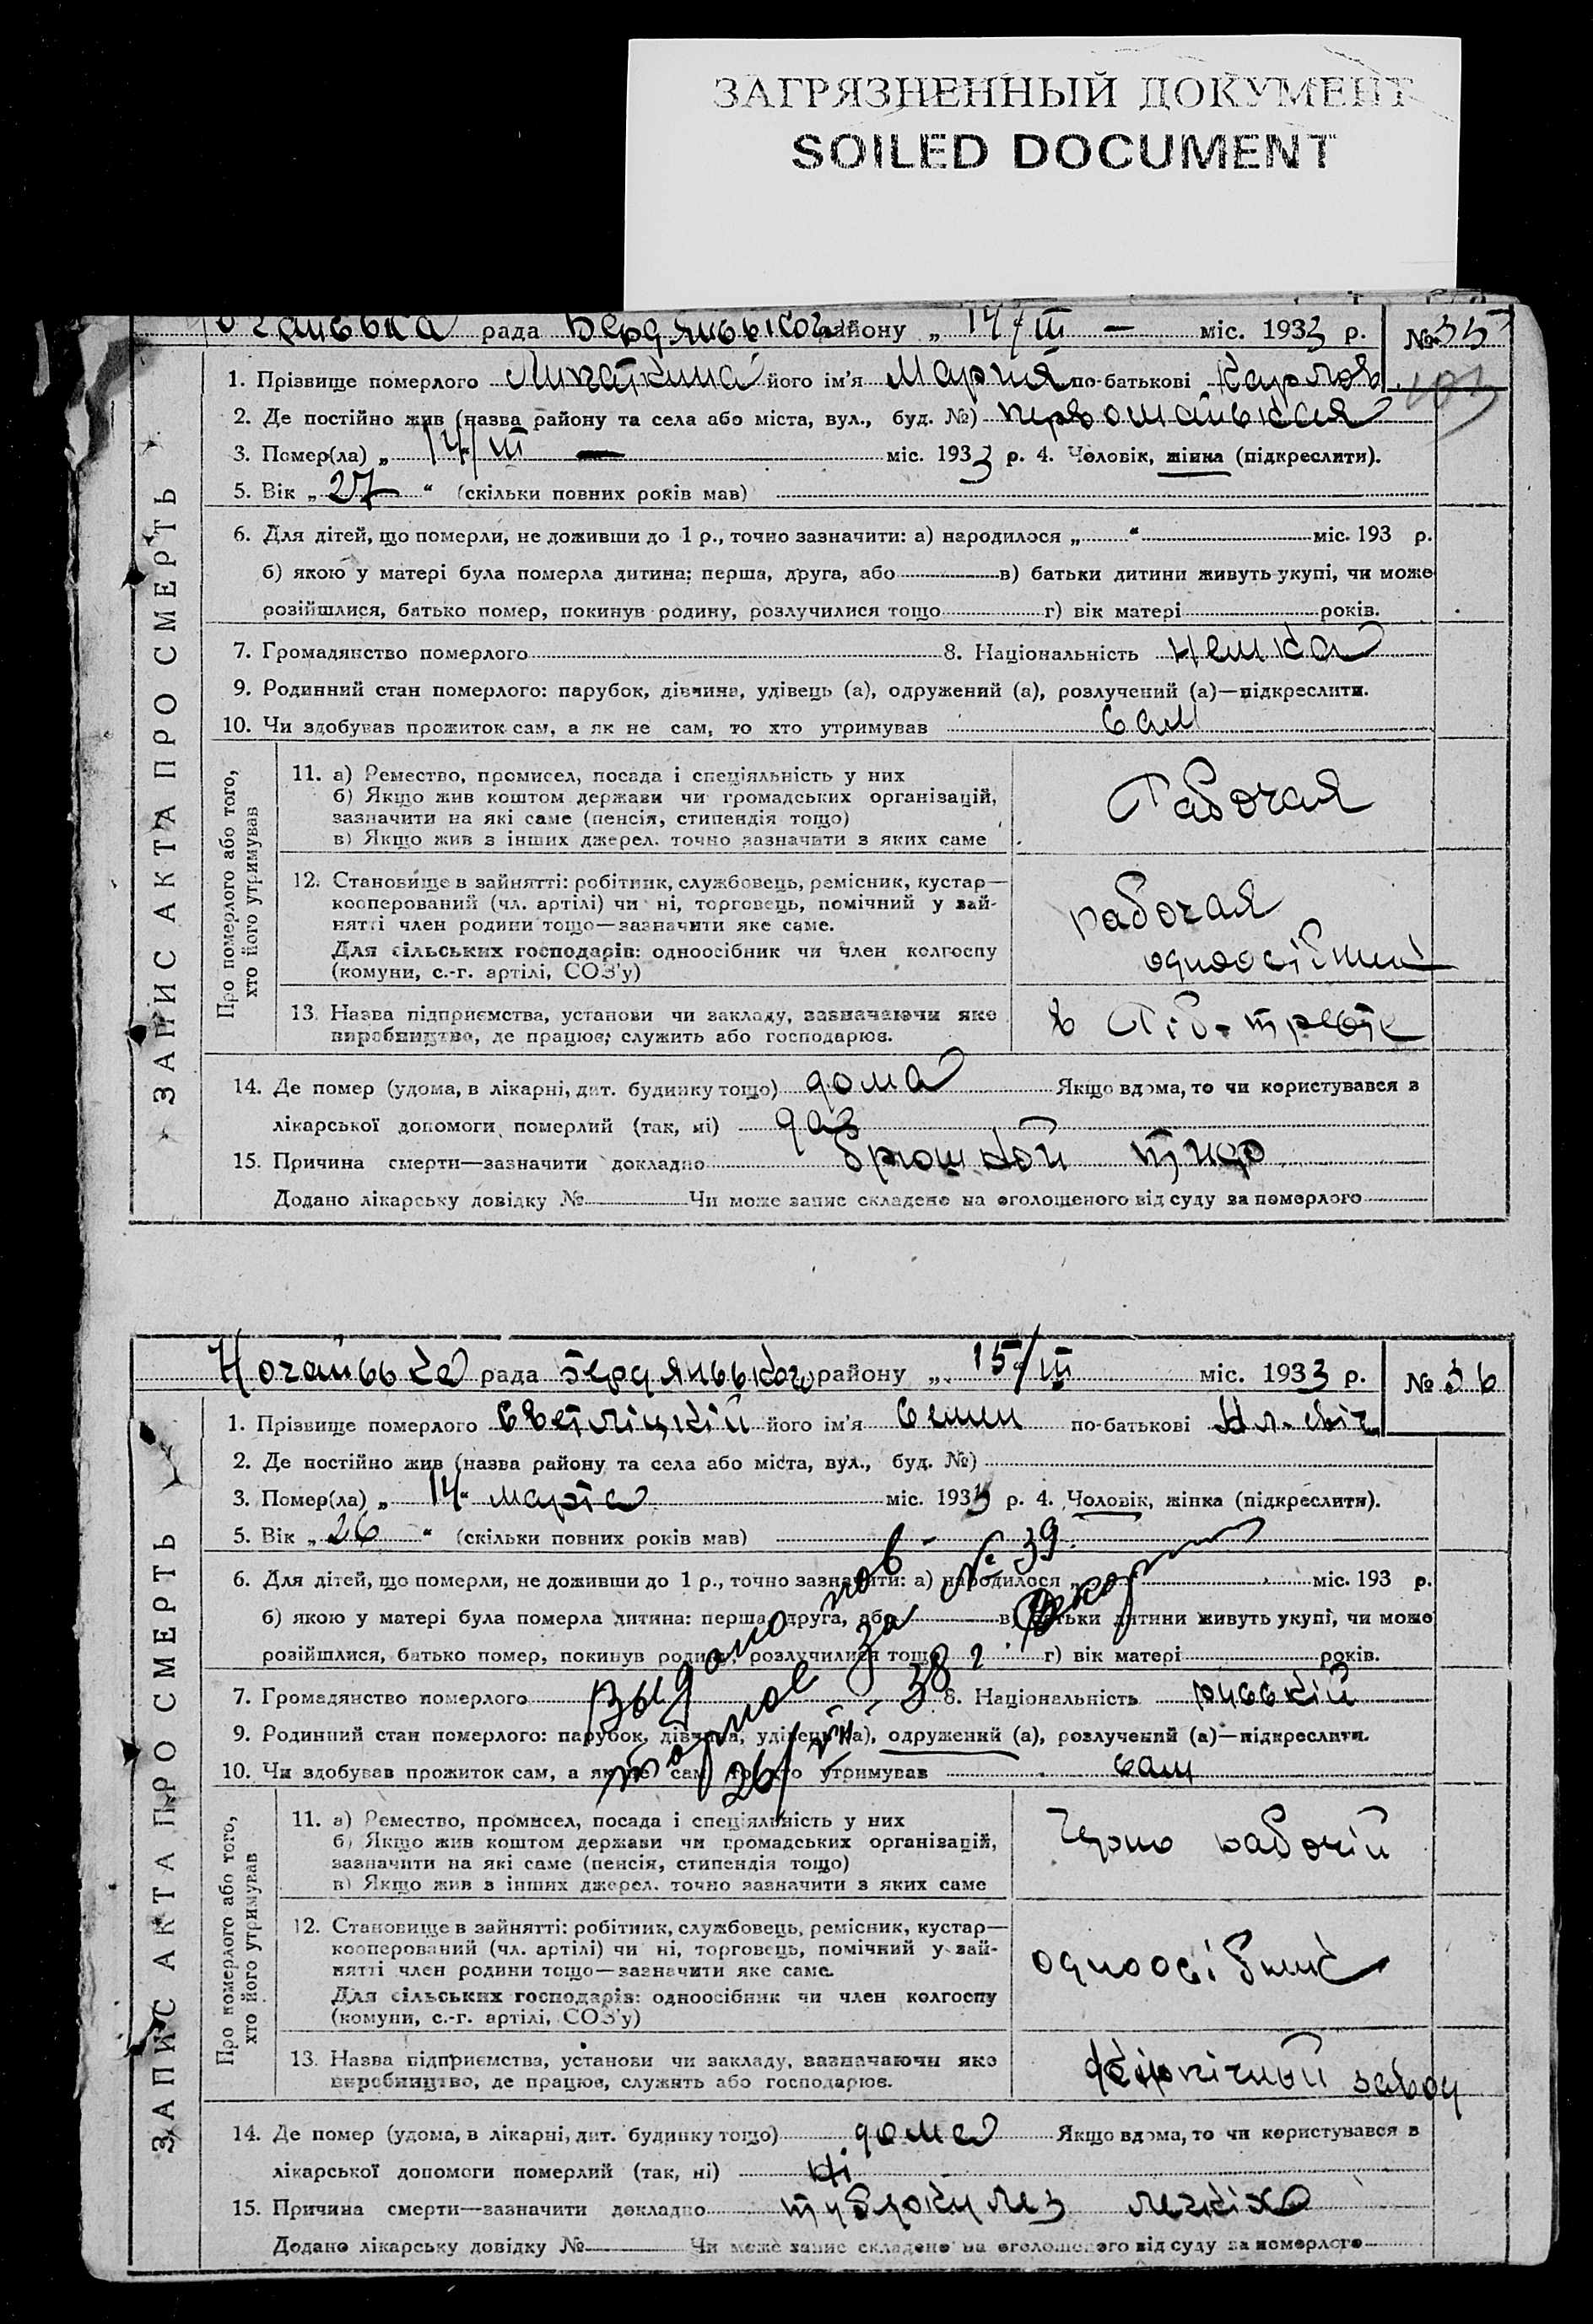 ЗАГРЯЗНЕННЫЙ ДОКУМЕНТ
SOILED DOCUMENT
рада Бердянського району „ 14/III — міс. 1933 р. № 35
1. Прізвище померлого його ім’я Мария по-батькові Карлов.
2. Де постійно жив (назва району та села або міста, вул., буд. №) первомайськая
3. Помер(ла) „ 14/III — міс. 1933 р. 4. Чоловік, жінка (підкреслити).
5. Вік „ 27 “ (скільки повних років мав)
6. Для дітей, що померли, не доживши до 1 р., точно зазначити: а) народилося „ “ міс. 193 р.
б) якою у матері була померла дитина: перша, друга, або в) батьки дитини живуть укупі, чи може
розійшлися, батько помер, покинув родину, розлучилися тощо г) вік матері років.
7. Громадянство померлого 8. Національність немка
9. Родинний стан померлого: парубок, дівчина, удівець (а), одружений (а), розлучений (а)—підкреслити.
10. Чи здобував прожиток сам, а як не сам, то хто утримував сам
ЗАПИС АКТА ПРО СМЕРТЬ
Про померлого або того,
хто його утримував
11. а) Ремество, промисел, посада і спеціяльність у них
б) Якщо жив коштом держави чи громадських організацій,
зазначити на які саме (пенсія, стипендія тощо)
в) Якщо жив з інших джерел. точно зазначити з яких саме
Рабочая
12. Становище в зайнятті: робітник, службовець, ремісник, кустар—
кооперований (чл. артілі) чи ні, торговець, помічний у зай-
нятті член родини тощо—зазначити яке саме.
Для сільських господарів: одноосібник чи член колгоспу
(комуни, с.-г. артілі, СОЗ’у)
рабочая
одноосібник
13. Назва підприємства, установи чи закладу, зазначаючи яке
виробництво, де працює, служить або господарює.
в
14. Де помер (удома, в лікарні, дит. будинку тощо) дома Якщо вдома, то чи користувався з
лікарської допомоги померлий (так, ні) да
15. Причина смерти—зазначити докладно брюшной тиф
Додано лікарську довідку № Чи може запис складено на оголошеного від суду за померлого
Ногайська рада Бердянського району „ 15/III міс. 1933 р. № 36
1. Прізвище померлого Светліцкій його ім’я Семен по-батькові
2. Де постійно жив (назва району та села або міста, вул., буд. №)
3. Помер(ла) „ 14. марта міс. 1933 р. 4. Чоловік, жінка (підкреслити).
5. Вік „ 26 “ (скільки повних років мав)
6. Для дітей, що померли, не доживши до 1 р., точно зазначити: а) народилося „ “ міс. 193 р.
б) якою у матері була померла дитина: перша, друга, або в) батьки дитини живуть укупі, чи може
розійшлися, батько помер, покинув родину, розлучилися тощо г) вік матері років.
Выдано пов-
торное за № 39
26/VII-38 г.
7. Громадянство померлого 8. Національність руський
9. Родинний стан померлого: парубок, дівчина, удівець (а), одружений (а), розлучений (а)—підкреслити.
10. Чи здобував прожиток сам, а як не сам, то хто утримував сам
ЗАПИС АКТА ПРО СМЕРТЬ
Про померлого або того,
хто його утримував
11. а) Ремество, промисел, посада і спеціяльність у них
б) Якщо жив коштом держави чи громадських організацій,
зазначити на які саме (пенсія, стипендія тощо)
в) Якщо жив з інших джерел. точно зазначити з яких саме
Черно рабочій
12. Становище в зайнятті: робітник, службовець, ремісник, кустар—
кооперований (чл. артілі) чи ні, торговець, помічний у зай-
нятті член родини тощо—зазначити яке саме.
Для сільських господарів: одноосібник чи член колгоспу
(комуни, с.-г. артілі, СОЗ’у)
одноосібник
13. Назва підприємства, установи чи закладу, зазначаючи яке
виробництво, де працює, служить або господарює.
кірпічний завод
14. Де помер (удома, в лікарні, дит. будинку тощо) дома Якщо вдома, то чи користувався з
лікарської допомоги померлий (так, ні) ні
15. Причина смерти—зазначити докладно туберкулез легкіх
Додано лікарську довідку № Чи може запис складено на оголошеного від суду за померлого